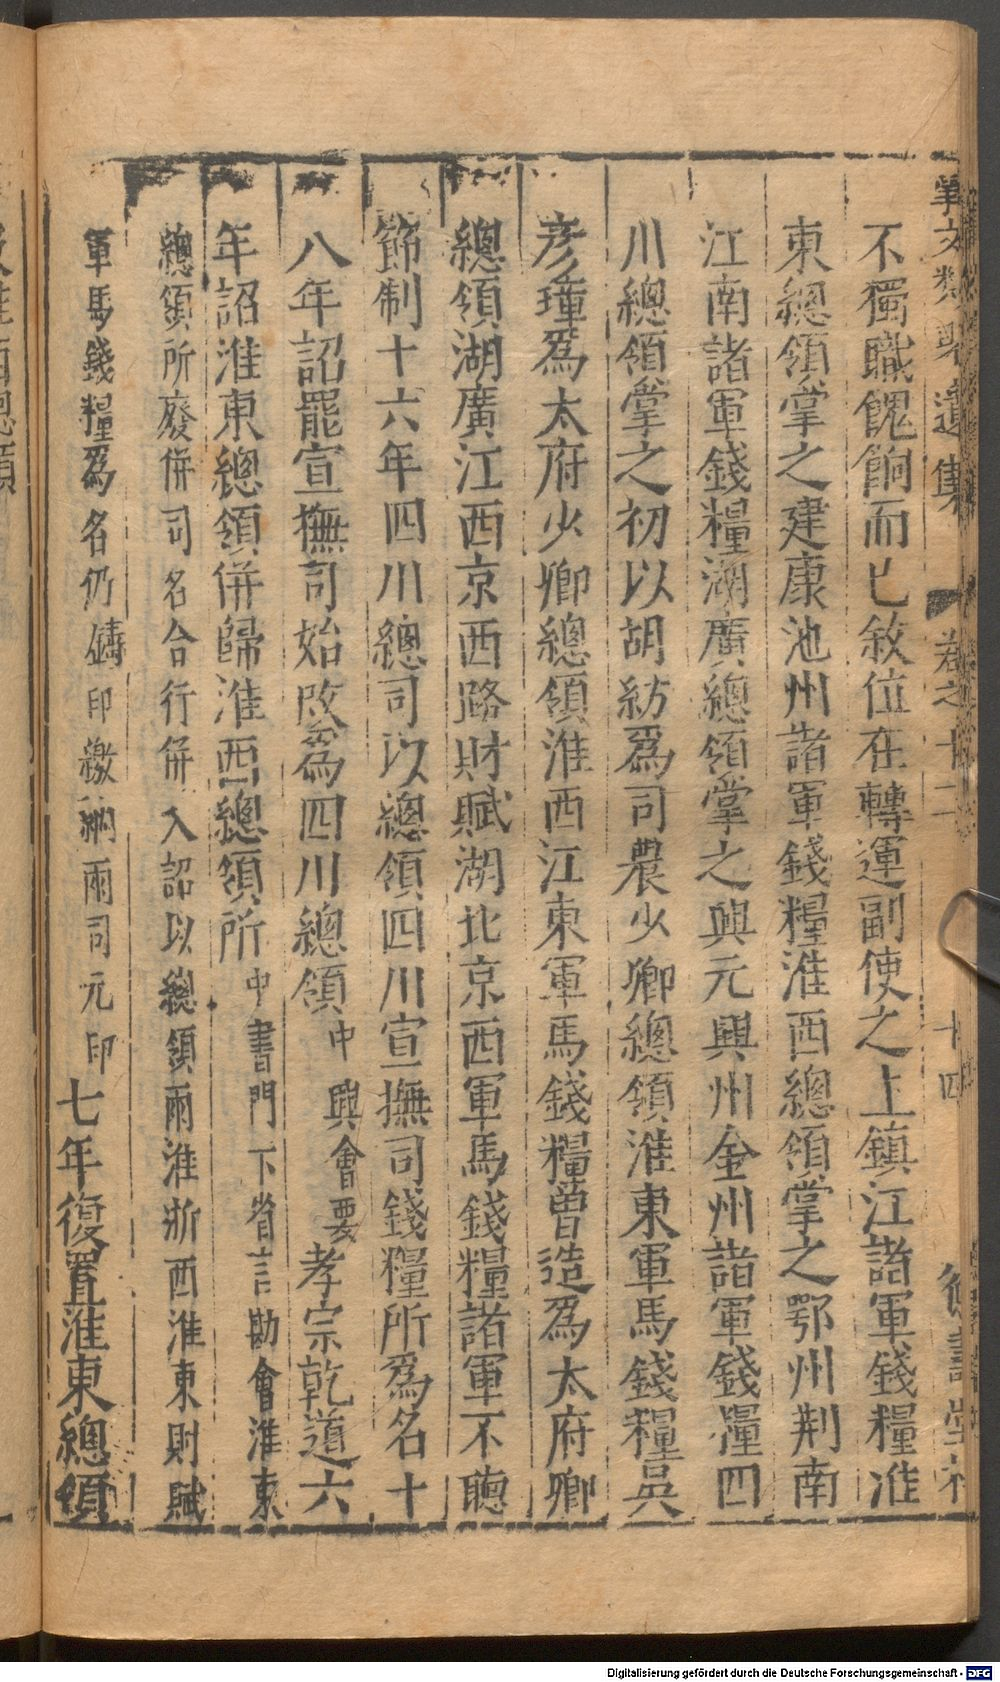 事文類聚遺集 卷之十二 十四 德壽堂梓
不獨職餽餉而已敘位在轉運副使之上鎮江諸軍錢糧淮
東總領掌之建康池州諸軍錢糧淮西總領掌之鄂州荆南
江南諸軍錢糧湖廣總領掌之興元興州金州諸軍錢糧四
川總領掌之初以胡紡爲司農少卿總領淮東軍馬錢糧吳
彥璋爲太府少卿總領淮西江東軍馬錢糧曾造爲太府卿
總領湖廣江西京西路財賦湖北京西軍馬錢糧諸軍不聽
節制十六年四川總司以總領四川宣撫司錢糧所爲名十
八年詔罷宣撫司始改爲四川總領中興會要孝宗乾道六
年詔淮東總領併歸淮西總領所中書門下省言勘會淮東
總領所廢併司名合行併入詔以總領兩淮浙西淮東財賦
軍馬錢糧爲名仍鑄印繳納兩司元印七年復置淮東總領
Digitalisierung gefördert durch die Deutsche Forschungsgemeinschaft - DFG